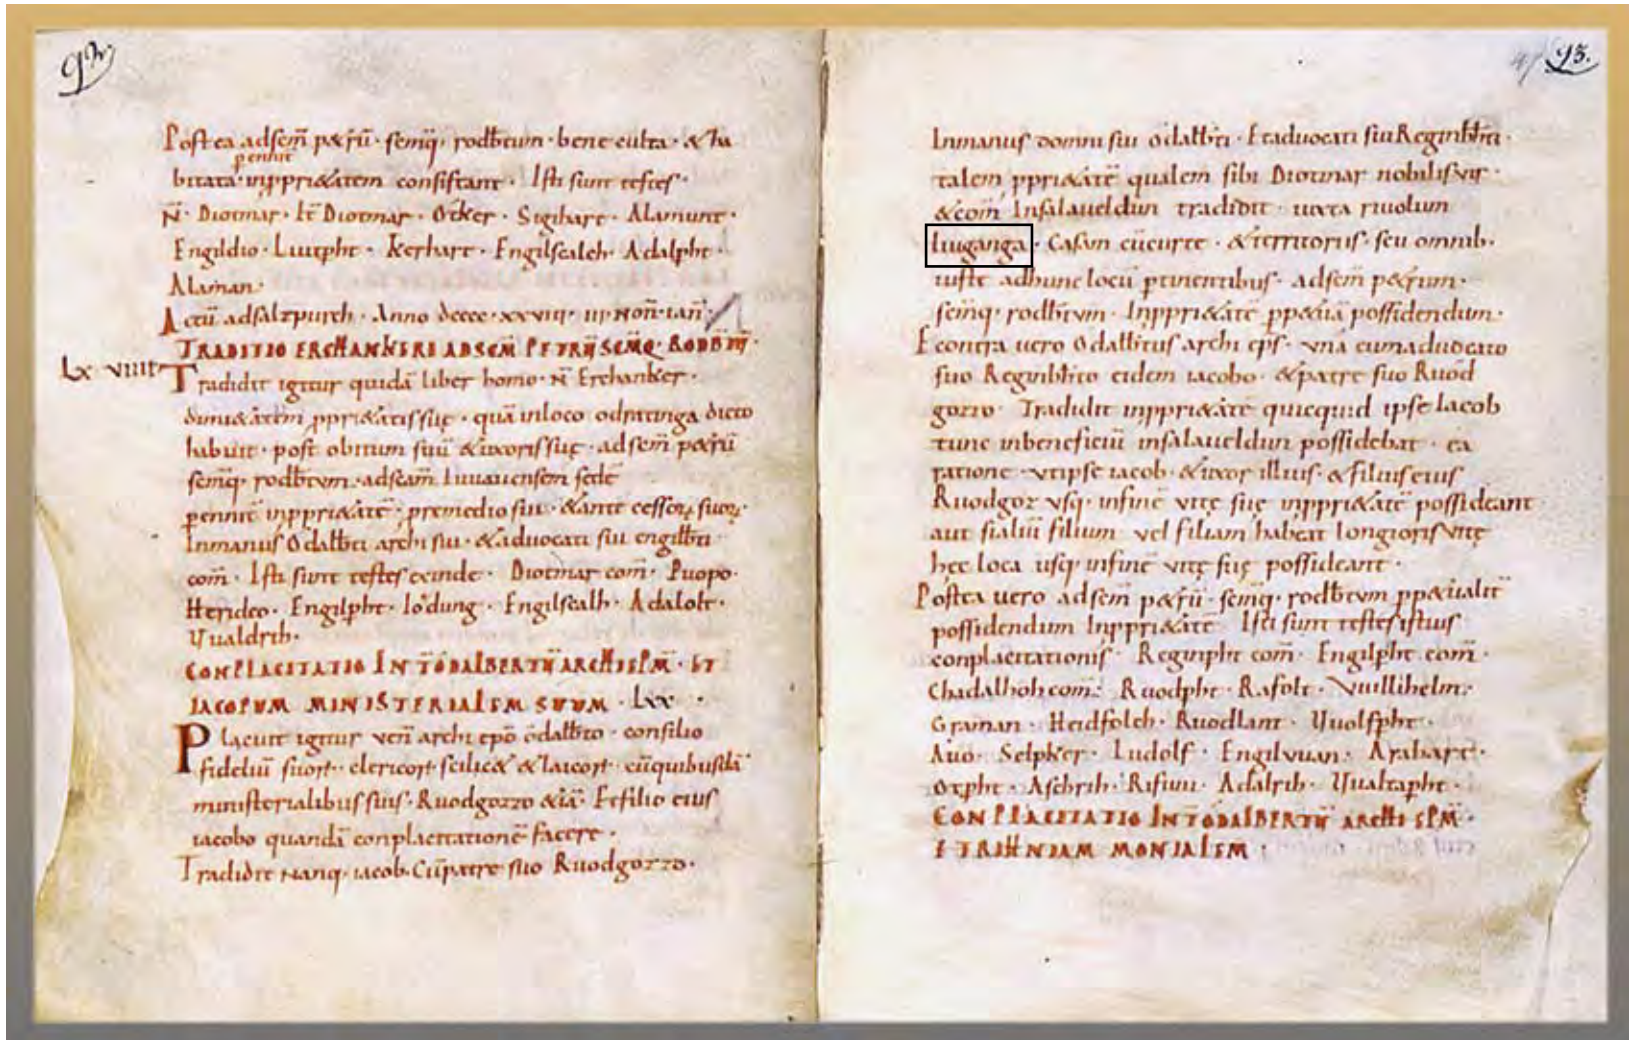 92
Postea adscm̄ p&rū · scm̄q; rodb̄tum · bene culta · & ha
pennit
bitata · inppri&atem consistant · Isti sunt testes ·
N̄ · Diotmar · It̄ Diotmar · Otker · Sigihart · Alamunt ·
Engildio · Liutpht · Kerhart · Engilscalch · Adalpht ·
Alaman ·
Actū adsalzpurch · Anno dcccc · xxviiii · iii · Non̄ · ian̄ ·
TRADITIO ERCHANKERI ADSCM̄ PETRŪ SCM̄Q · RODB̄TŪ ·
Lxviiii Tradidit igitur quidā liber homo · N̄ Erchanker ·
dimi&atem ppri&atis suę · quā inloco odratinga dicto
habuit · post obitum suū & uxoris suę · adscm̄ p&rū
scm̄q; rodb̄tum · adscam̄ Iuuauensem sedē
pennit̄ inppri&atē · premedio sui · & ante cessorꝝ suorꝝ ·
Inmanus Odalb̄ti archi sui · & advocati sui engilb̄ti
com̄ · Isti sunt testes exinde · Diotmar com̄ · Puopo ·
Herideo · Engilpht · Iodung · Engilscalh · Adalolt ·
Uualdrih ·
CONPLACITATIO INT̄ ODALBERTŪ ARCHIEPM̄ · ET
IACOPUM MINISTERIALEM SUUM · Lxx ·
Placuit igitur ven̄ archi epō odalb̄to · consilio
fideliū suorꝝ · clericorꝝ scilic& & laicorꝝ · cū quibusdā
ministerialibus suis · Ruodgozzo &iā · Et filio eius
iacobo quandā conplacitationē facere ·
Tradidit nanq; iacob · Cū patre suo Ruodgozzo ·
47 93.
Inmanus domni sui odalb̄ti · Et advocati sui Reginb̄ti ·
talem ppri&atē qualem sibi Diotmar nobilis vir ·
& com̄ Insalaueldun tradidit · iuxta riuolum
liuganga · Casam cū curte · & territoriis · seu omnib ·
iuste adhunc locū ptinentibus · adscm̄ p&rum ·
scm̄q; rodb̄tum · Inppri&atē pp&uā possidendum ·
Econtra uero Odalb̄tus archi ep̄s · una cum advocato
suo Reginb̄to eidem iacobo · & patre suo Ruod
gozzo · Tradidit inppri&atē quicquid ipse Iacob
tunc inbeneficiū insalaueldun possidebat · ea
ratione · ut ipse iacob · & uxor illius · & filius eius
Ruodgoz usq; infinē vitę suę inppri&atē possideant
aut si aliū filium vel filiam habeat longioris vitę
hec loca usq; infinē vitę suę possideant ·
Postea uero adscm̄ p&rū · scm̄q; rodb̄tum pp&ualit̄
possidendum Inppri&atē Isti sunt testes istius
conplacitationis · Reginpht com̄ · Engilpht com̄ ·
Chadalhoh com̄ · Ruodpht · Rafolt · Vuillihelm ·
Graman · Heidfolch · Ruodlant · Uuolfpht ·
Auo · Selpker · Ludolf · Engiluuan · Arahart ·
Otpht · Aschrih · Rifuui · Adalrih · Uualtapht ·
CONPLACITATIO INT̄ ODALBERTŪ ARCHIEPM̄ ·
ET RIHNIAM MONIALEM ·